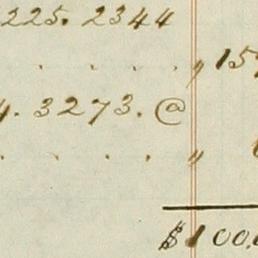 225. 2344
. . . . „ 15
4. 3273. @
. . . . „
$100.